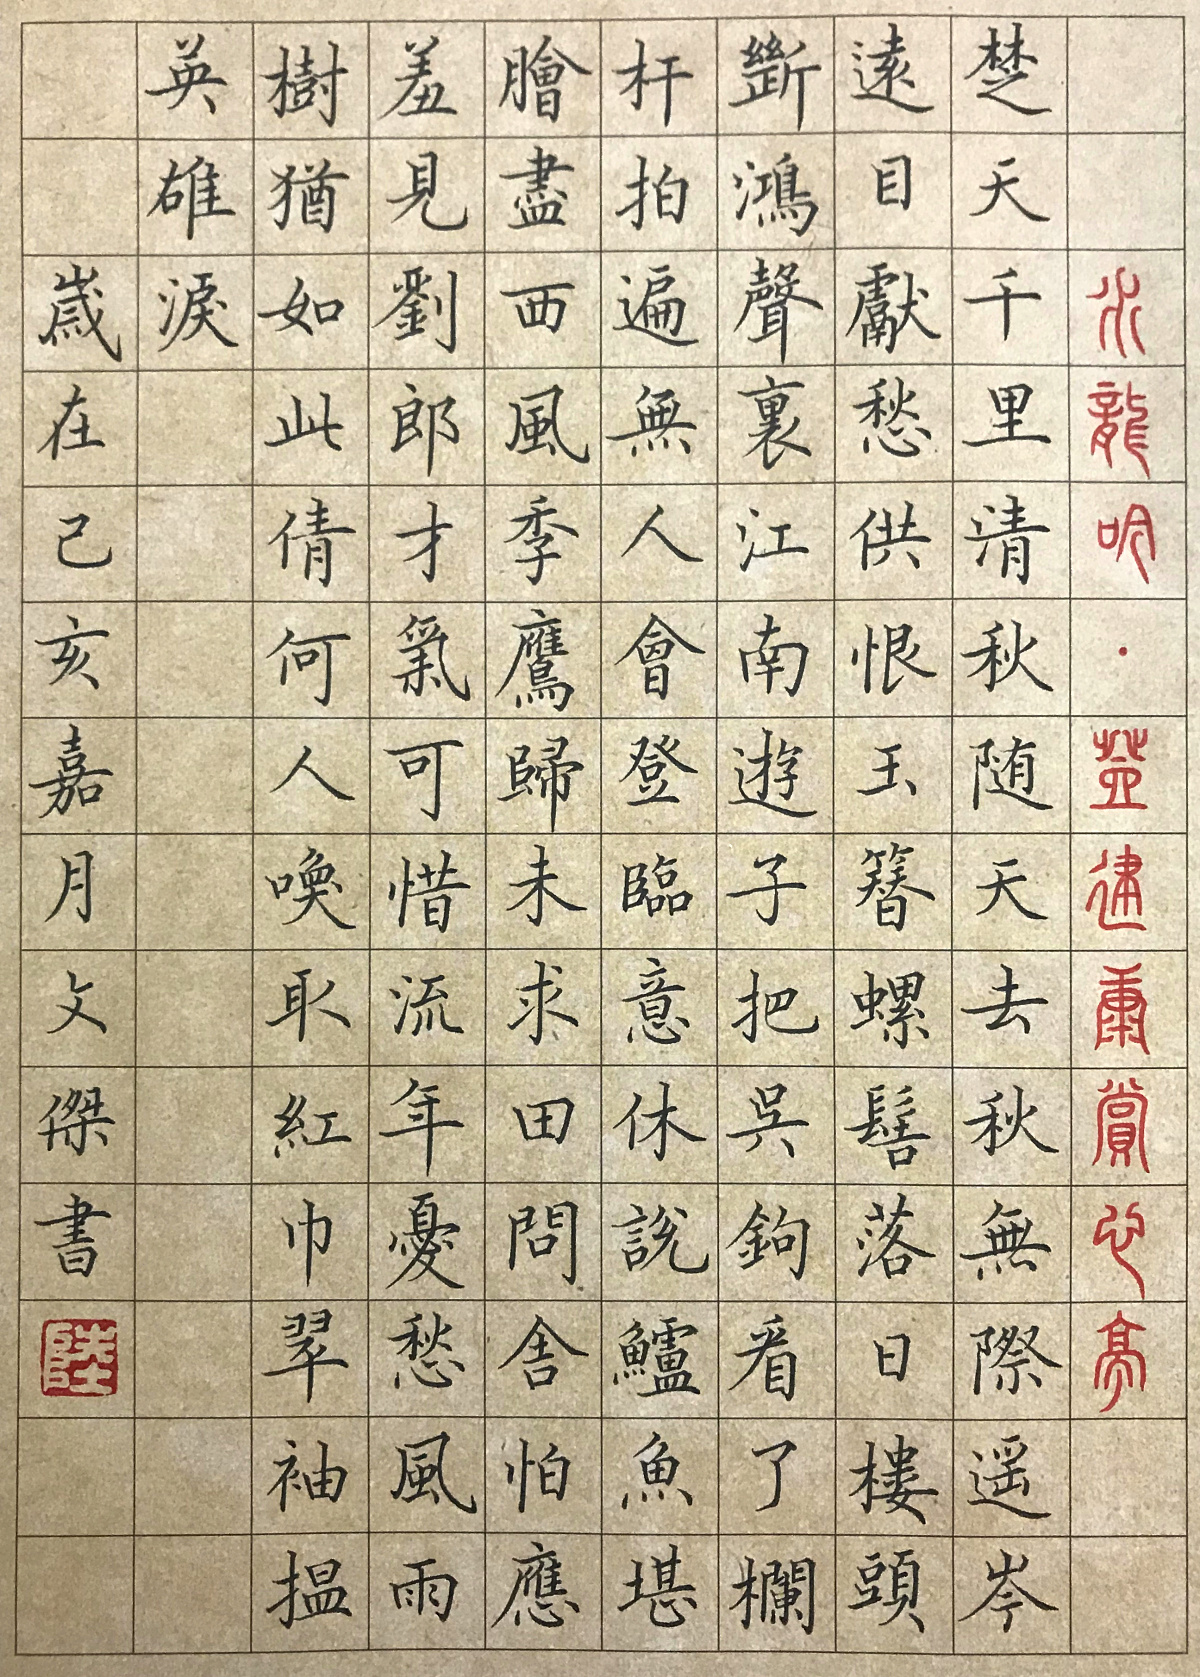 水龍吟·登建康賞心亭
楚天千里清秋随天去秋無際遥岑
遠目獻愁供恨玉簪螺髻落日樓頭
斷鴻聲裏江南遊子把吳鉤看了欄
杆拍遍無人會登臨意休說鱸魚堪
膾盡西風季鷹歸未求田問舍怕應
羞見劉郎才氣可惜流年憂愁風雨
樹猶如此倩何人喚取紅巾翠袖揾
英雄淚
歲在己亥嘉月文傑書
陸